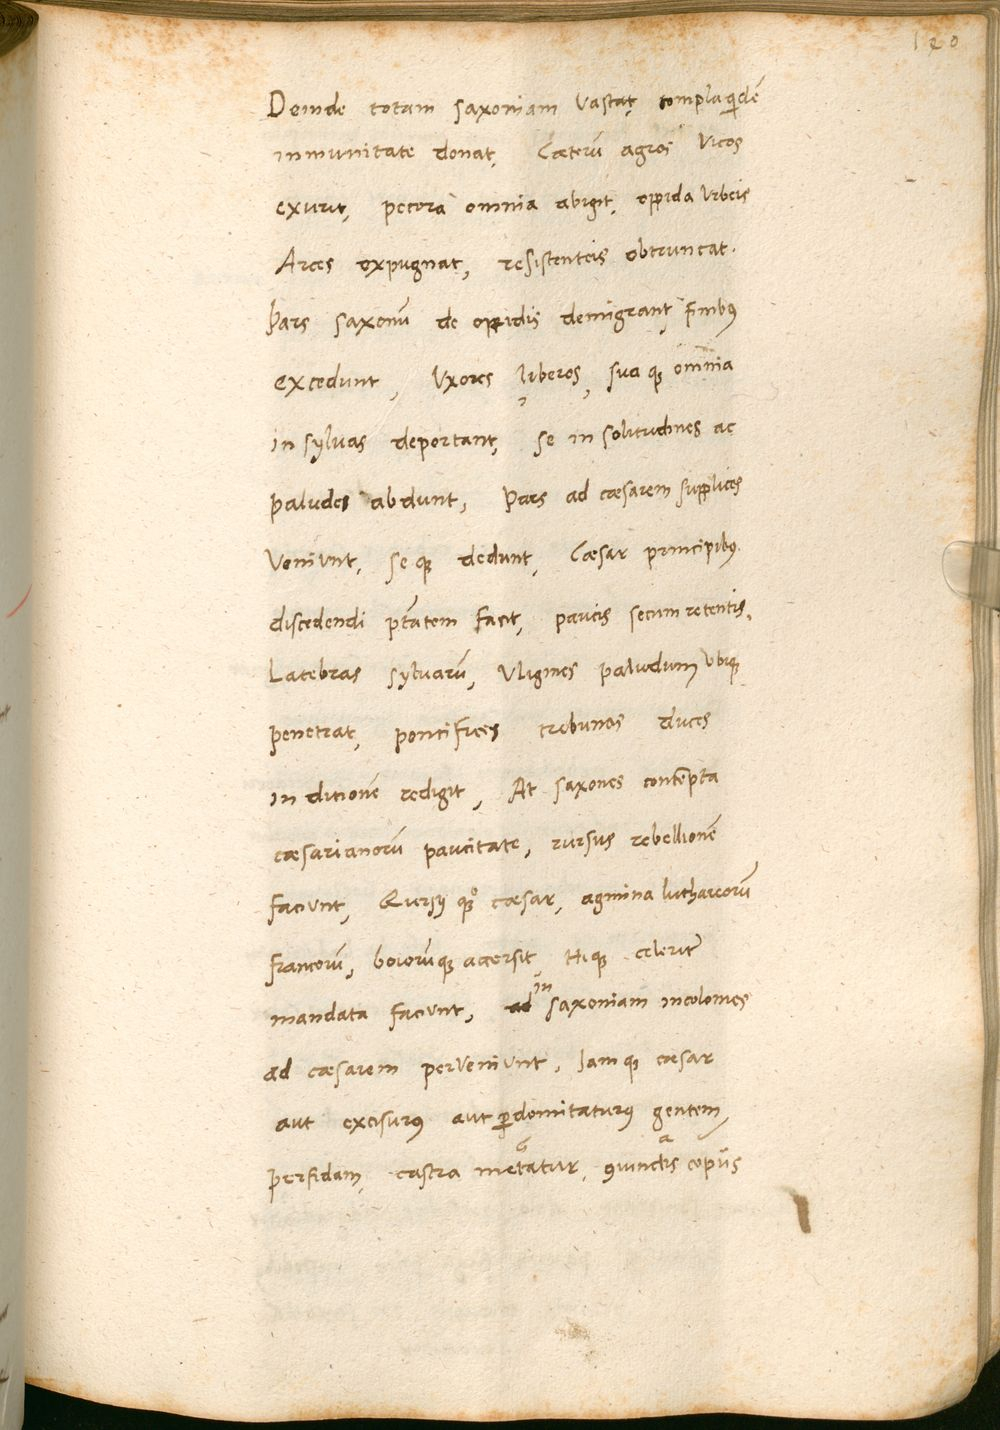 120
Deinde totam saxoniam vastat, templa q̃dẽ
inmunitate donat, Cæterũ agros vicos
exurit, pecora omnia abigit, oppida Vrbeis
Arces expugnat, resistenteis obtruncat.
Pars saxonũ de oppidis demigrant, finibꝰ
excedunt, Vxores, liberos, sua qꝫ omnia
in sylvas deportant, se in solitudines ac
paludes abdunt, Pars ad cæsarem supplices
Veniunt, se qꝫ dedunt, Cæsar principibꝰ
discedendi ptãtem facit, paucis secum retentis,
Latebras sylvarũ, Vligines paludum Vbiqꝫ
penetrat, pontifices tribunos duces
in ditionẽ redigit, At saxones contẽpta
cæsarianorũ paucitate, rursus rebellionẽ
faciunt, Quersij cæsar, agmina lutharicorũ
francorũ, boiorũqꝫ accersit, Hi qꝫ celeriť
mandata faciunt, in saxoniam incolomes
ad cæsarem perveniunt, Iam qꝫ cæsar
aut excisurꝰ aut ꝑdomitaturꝰ gentem
perfidam, castra metatur, ꝯiunctis copijs